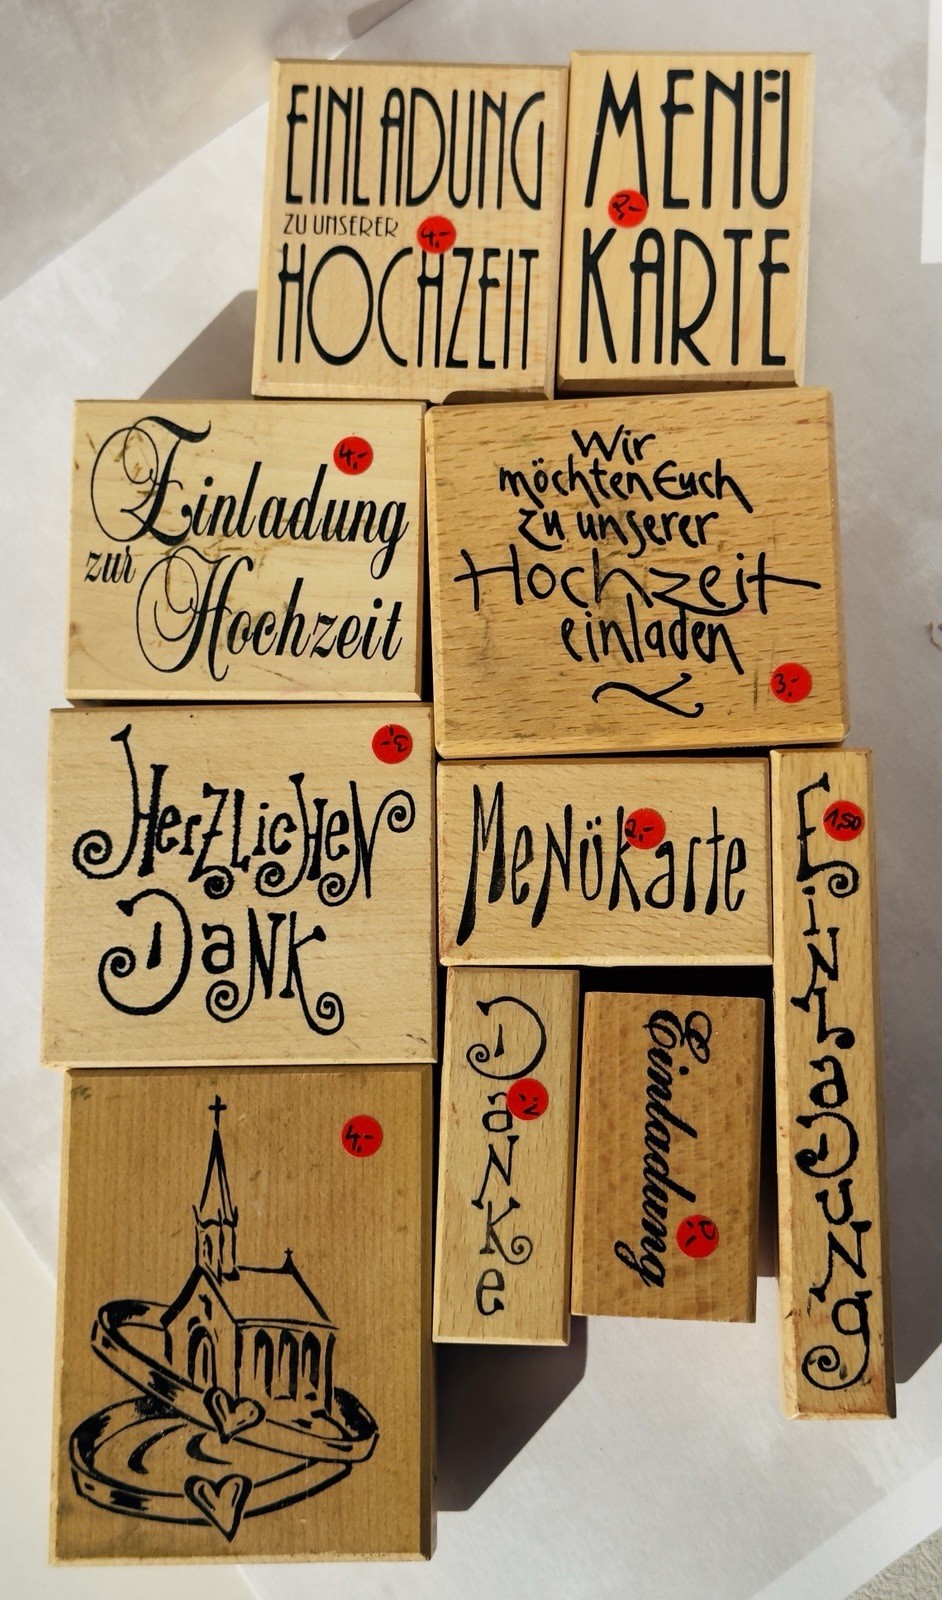 EINLADUNG
ZU UNSERER
HOCHZEIT
4,-
MENÜ
2,-
KARTE
Einladung
zur
Hochzeit
4,-
Wir
möchten Euch
zu unserer
Hochzeit
einladen
3,-
HerzlicHeN
DaNK
3,-
MeNüKarte
2,-
EiNlaDuNG
1,50
DaNKe
Einladung
4,-